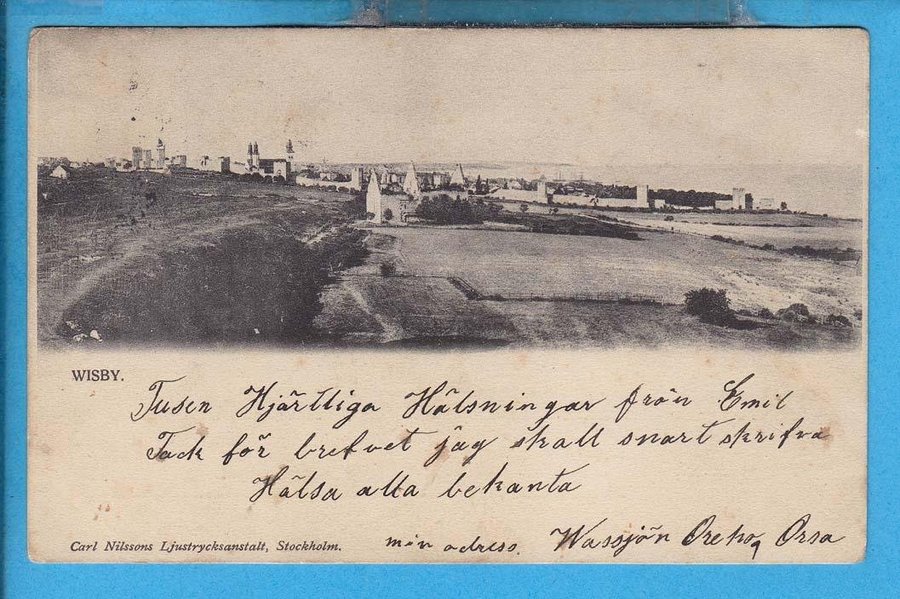 WISBY.
Tusen Hjärtliga Hälsningar från Emil
Tack för brefvet jag skall snart skrifva
Hälsa alla bekanta
Carl Nilssons Ljustrycksanstalt, Stockholm.
min adress. Wassjön Orsa